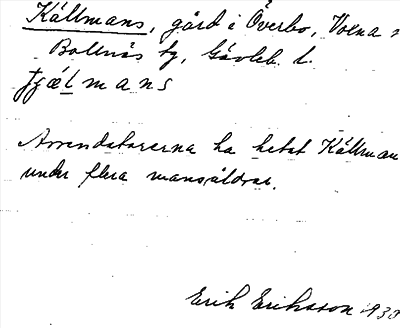 Källmans, gård i Överbo, Voxna
Bollnäs tg, Gävleb. l.
tjælmans
Arrendatorerna ha hetat Källman
under flera mansåldrar.
Erik Eriksson